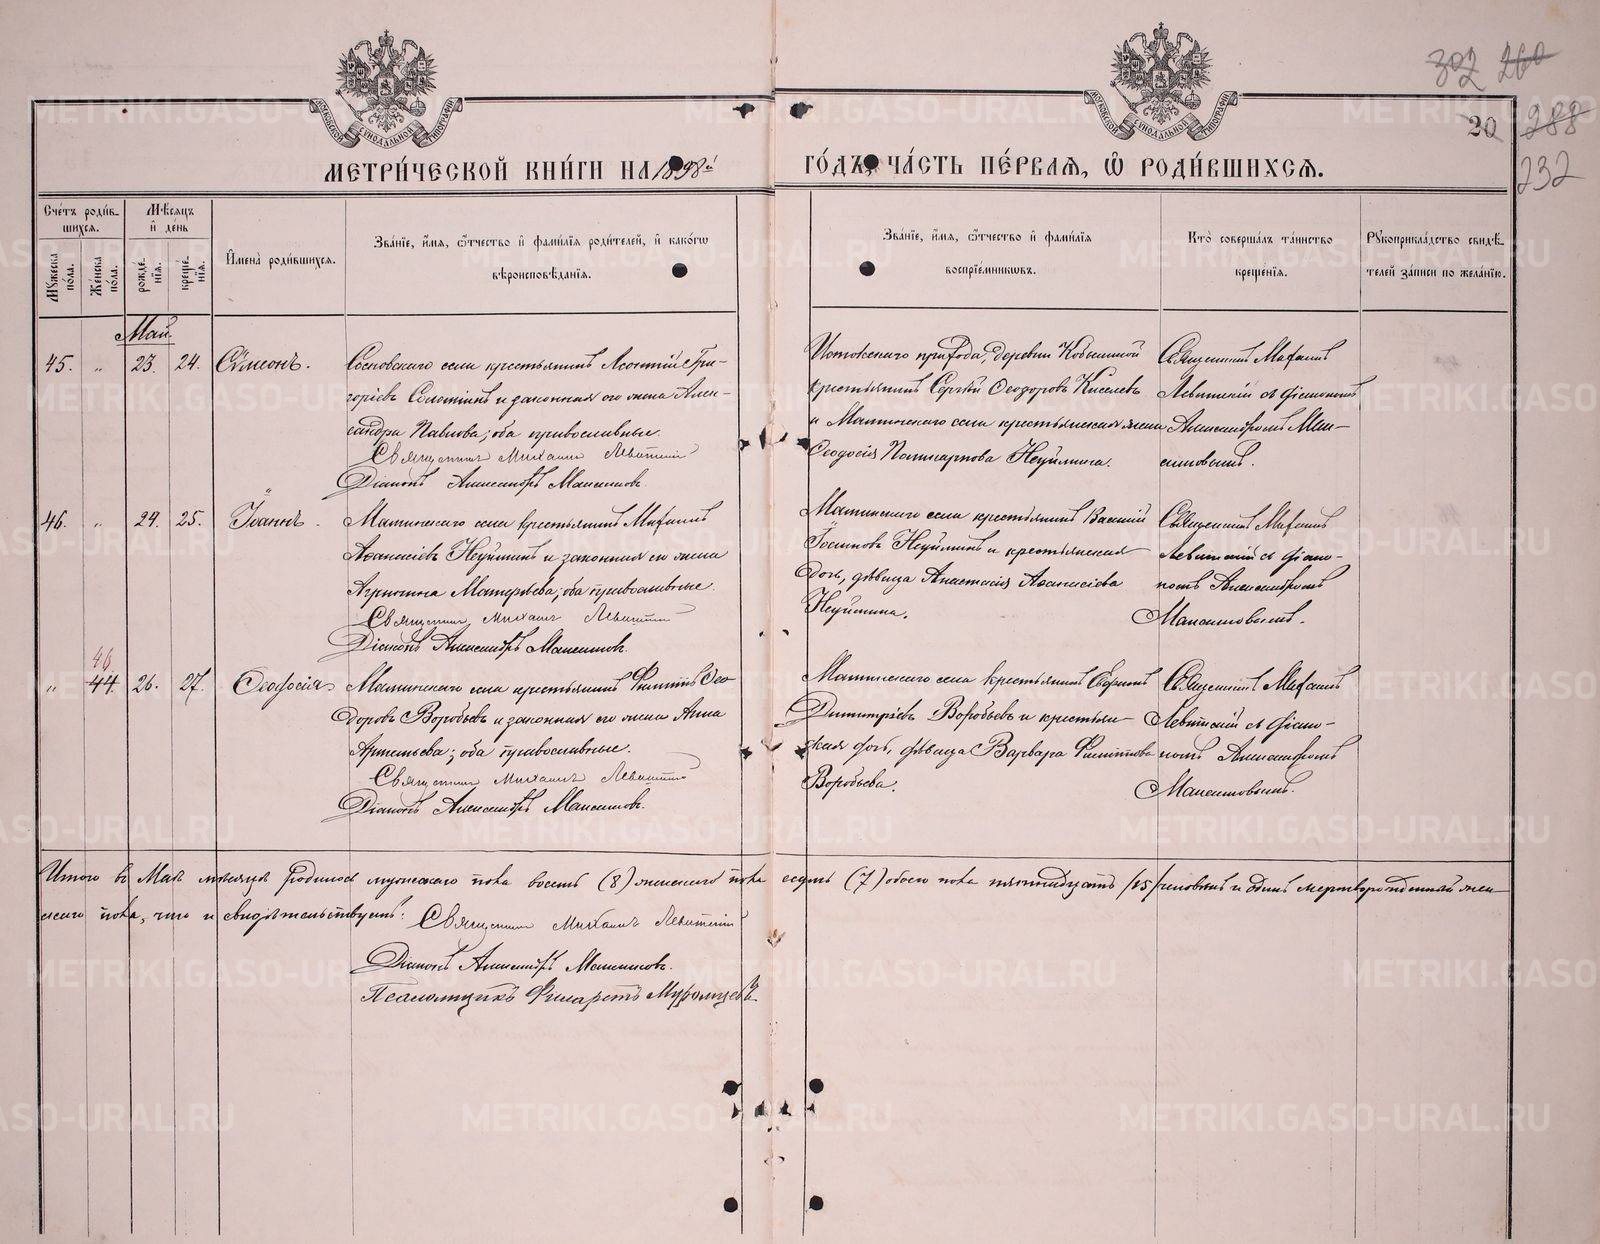 302 260
20 288
232
МОСКОВСКОЙ СѴНОДАЛЬНОЙ ТИПОГРАФІИ
МОСКОВСКОЙ СѴНОДАЛЬНОЙ ТИПОГРАФІИ
МЕТРИ́ЧЕСКОЙ КНИ́ГИ НА 1898й ГО́ДЪ, ЧА́СТЬ ПЕ́РВАЯ, Ѡ РОДИ́ВШИХСЯ.
Сче́тъ роди́в-
шихся.
Мꙋжеска по́ла.
Же́нска по́ла.
Мѣ́сяцъ
и҆ де́нь
рожде́-нїя.
креще́-нїя.
И҆мена̀ роди́вшихся.
Зва́нїе, и҆́мя, ѻ҆́тчество и҆ фами́лїя роди́телей, и҆ како́гѡ
вѣроисповѣ́данїя.
Зва́нїе, и҆́мя, ѻ҆́тчество и҆ фами́лїя
восприе́мникѡвъ.
Кто̀ соверша́лъ та́инство
креще́нїя.
Рꙋкоприкла́дство свидѣ́-
телей за́писи по жела́нїю.
Май
45. „ 23. 24. Сѵмеонъ.
Сосновскаго села крестьянинъ Леонтій Гри-
горіевъ и законная его жена Алек-
сандра Павлова; оба православные.
Священникъ Михаилъ Левитскій
Діаконъ Александръ Максимовъ.
прихода, деревни
крестьянинъ Сергѣй Ѳеодоровъ Киселевъ
и Маминскаго села крестьянская жена
Ѳеодосія Поликарпова Неуймина.
Священникъ Михаилъ
Левитскій съ діакономъ
Александромъ Мак-
симовымъ.
46. „ 24. 25. Іоаннъ.
Маминскаго села крестьянинъ Михаилъ
Аѳанасіевъ Неуйминъ и законная его жена
Агрипина Матвѣева; оба православные.
Священникъ Михаилъ Левитскій
Діаконъ Александръ Максимовъ.
Маминскаго села крестьянинъ Василій
Іосифовъ Неуйминъ и крестьянская
дочь, дѣвица Анастасія Аѳанасіева
Неуймина.
Священникъ Михаилъ
Левитскій съ діако-
номъ Александромъ
Максимовымъ.
46
„ 44. 26. 27. Ѳеодосія
Маминскаго села крестьянинъ Филиппъ Ѳео-
доровъ Воробьевъ и законная его жена Анна
Артемьева; оба православные.
Священникъ Михаилъ Левитскій
Діаконъ Александръ Максимовъ.
Маминскаго села крестьянинъ
Димитріевъ Воробьевъ и крестьян-
ская дочь, дѣвица Варвара Филиппова
Воробьева.
Священникъ Михаилъ
Левитскій съ діако-
номъ Александромъ
Максимовымъ.
Итого въ Маѣ мѣсяцѣ родилось мужескаго пола восемь (8) женскаго пола седмь (7) обоего пола пятнадцать (15) человѣкъ и одинъ мертворожденный жен-
скаго пола, что и свидѣтельствуемъ: Священникъ Михаилъ Левитскій
Діаконъ Александръ Максимовъ.
Псаломщикъ Филаретъ Муромцевъ
METRIKI.GASO-URAL.RU